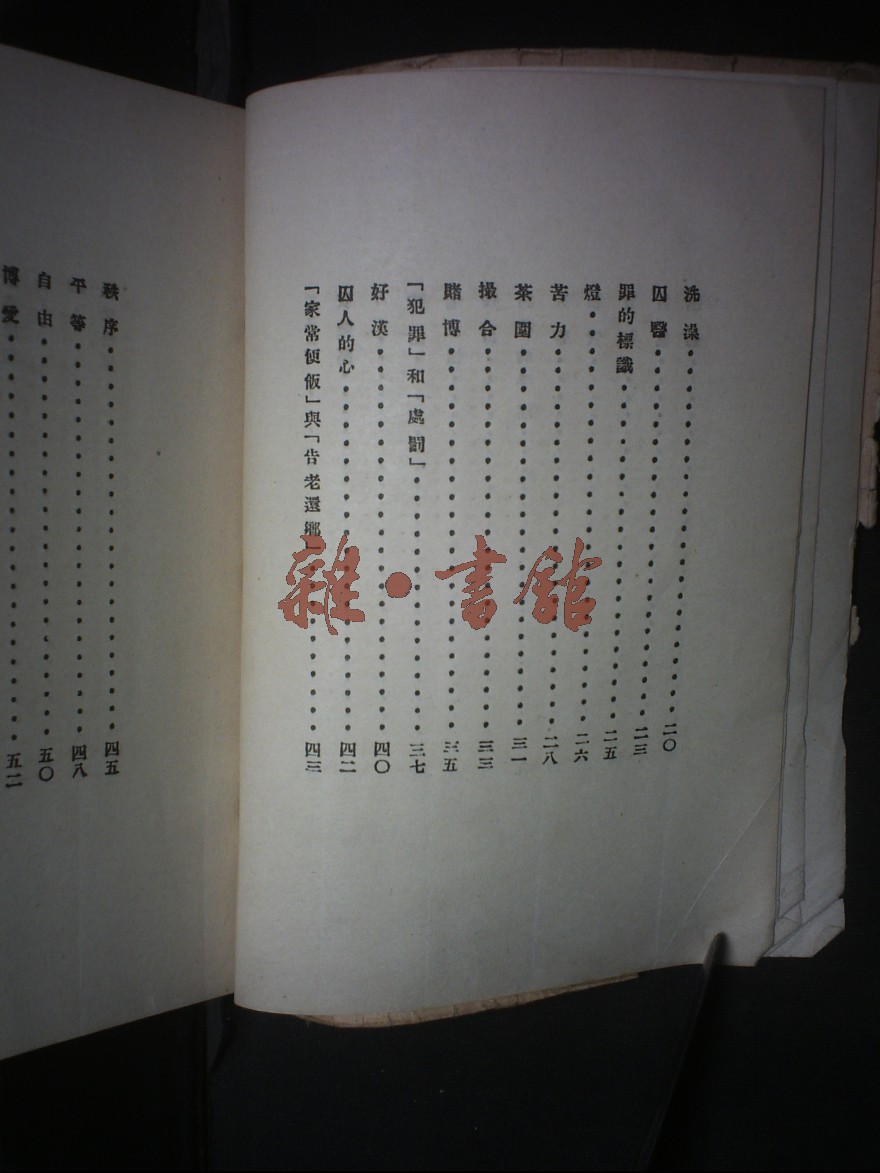 洗澡••••••••••••••••••二〇
囚醫••••••••••••••••••二三
罪的標識••••••••••••••••二五
燈•••••••••••••••••••二六
苦力••••••••••••••••••二八
茶園••••••••••••••••••三一
撮合••••••••••••••••••三三
賭博••••••••••••••••••三五
「犯罪」和「處罰」••••••••••••三七
好漢••••••••••••••••••四〇
囚人的心••••••••••••••••四二
「家常便飯」與「告老還鄉」••••••••四三
秩序••••••••••••••••••四五
平等••••••••••••••••••四八
自由••••••••••••••••••五〇
博愛••••••••••••••••••五二
雜•書館